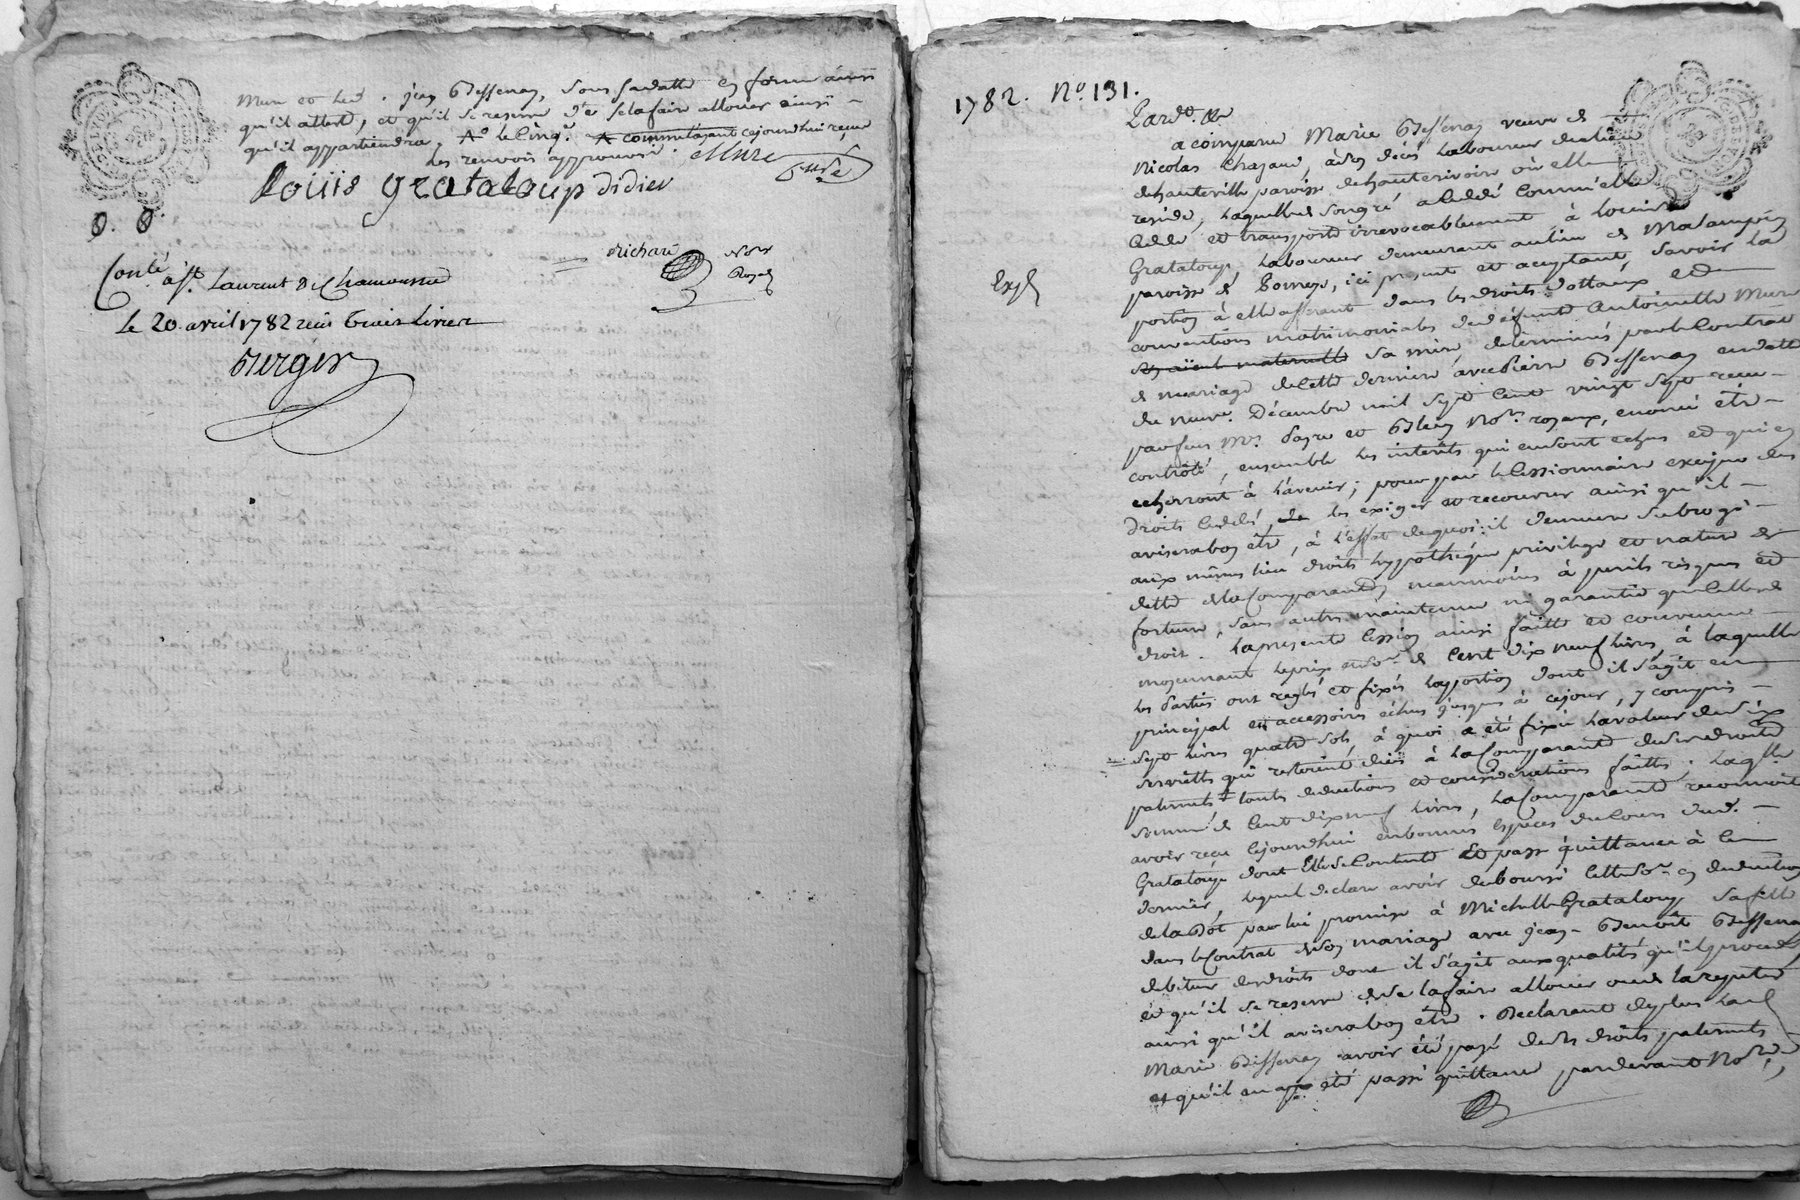 Mure et led. jean Bessenay, sous sa datte en forme ainsi
qu'il attend, et qu'il se reserve de se la faire allouer ainsi
qu'il appartiendra, le cinq. commettant cejourdhui receu
les renvois approuvés. Mure
Louiis grataloup didier
Richard Nore Royal
Conlé à St. Laurent de Chamousset
le 20. avril 1782 reçu trois livres
Berger
1782. No. 131.
Pard.t &a
a comparu Marie Bessenay veuve de
Nicolas Chazaud, à son décès laboureur du lieu
de hauteville paroisse de hauterivoire où elle
reside, laquelle de son gré a cedé comm'elle
cede et transporte irrevocablement à Louis
Grataloup laboureur demeurant au lieu de Malampin
paroisse de Pomeys, ici present et acceptant, savoir la
portion à elle afferant dans les droits dottaux et
conventions matrimoniales de deffunte Antoinette Mure
son aïeul maternelle sa mere, determinés par le Contrat
de mariage de cette derniere avec Pierre Bessenay en datte
du neuve. Décembre mil sept cent vingt sept receu
par feus Mes. et Blein Nores. royaux, enoncé être
contrôlé, ensemble les interêts qui en sont echus et qui en
echerront à l'avenir; pour par le Cessionnaire exciper des
droits cedés, de les exiger et recouvrer ainsi qu'il
avisera bon être, à l'effet de quoi il demeure subrogé
aux mêmes lieu droits hypothèque privilege et nature de
dette de la Comparante, neanmoins à perils risques et
fortune, sans autre maintenue ni garantie que celle de
droit. la presente Cession ainsi faitte et convenue
moyennant le prix et soe. de Cent dix neuf livres, à laquelle
les Parties ont reglé et fixés la portion dont il s'agit en
principal et accessoires echus jusques à cejour, y compris
sept livres quatre sols à quoi a été fixée la valeur de six
serviettes qui restoient dües à la Comparante de ses droits
paternels toutes deductions et considerations faittes; laqlle.
somme de Cent dix neuf livres, la Comparante reconnoit
avoir reçu cejourdhui en bonnes espèces du Cours dud.
Grataloup dont Elle se Contente et passe quittance à ce
dernier, lequel declare avoir deboursé cette soe. en deduction
de la Dot par lui promise à Michelle Grataloup sa fille
dans le Contrat de son mariage avec jean-Benoît Bessenay
debiteur des droits dont il s'agit aux qualités qu'il procede,
et qu'il se reserve de se la faire allouer ou de la repeter
ainsi qu'il avisera bon être. Declarant de plus lad.
Marie Bessenay avoir été payé de ses droits paternels
et qu'il en a été passé quittance pardevant Nore.,
Expé